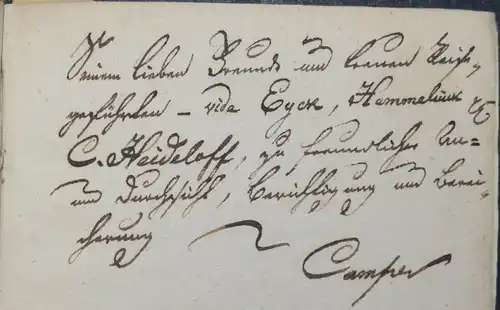 Seinem lieben Freunde und treuen Reise-
gefährten – vide Eyck, Hemmelink &
C. Heideloff, zu freundlicher An-
und Durchsicht, Berichtigung und Berei-
cherung
Campe